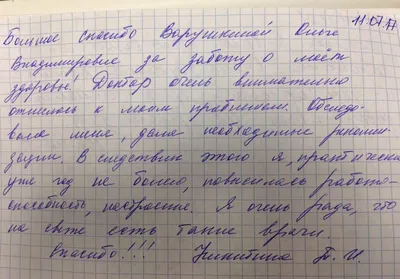 11.07.17
Большое спасибо Варушкиной Ольге
Владимировне за заботу о моём
здоровы! Доктор очень внимательно
отнеслась к моим проблемам. Обследо-
вала меня, дала необходимые рекомен-
дации. В следствии этого я, практически
уже год не болею, повысилась работо-
способность, настроение. Я очень рада, что
на свете есть такие врачи.
Спасибо!!! Никитина Т. И.